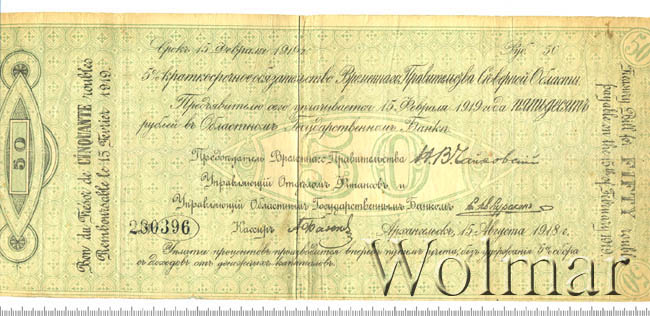 50
Bon du Trésor de CINQUANTE roubles
Remboursable le 15 Février 1919.
Срокъ 15 Февраля 1919г.
Руб. 50
5% краткосрочное обязательство Временнаго Правительства Сѣверной Области
Предъявителю сего уплачивается 15 Февраля 1919 года пятьдесятъ
рублей въ Областномъ Государственномъ Банкѣ
50
Предсѣдатель Временнаго Правительства Н. В. Чайковскій
Управляющій Отдѣломъ Финансовъ и
Управляющій Областнымъ Государственнымъ Банкомъ
230396
Кассиръ
Архангельскъ, 15 Августа 1918 г.
Уплата процентовъ производится впередъ путемъ учета, безъ удержанія 5% сбора
съ доходовъ отъ денежныхъ капиталовъ.
50
Treasury Bill for FIFTY roubles
payable on the 15th of February 1919
50
Wolmar